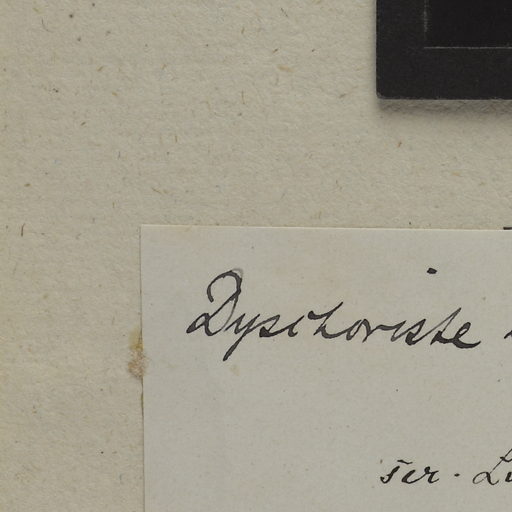 Dyschoriste
ser.